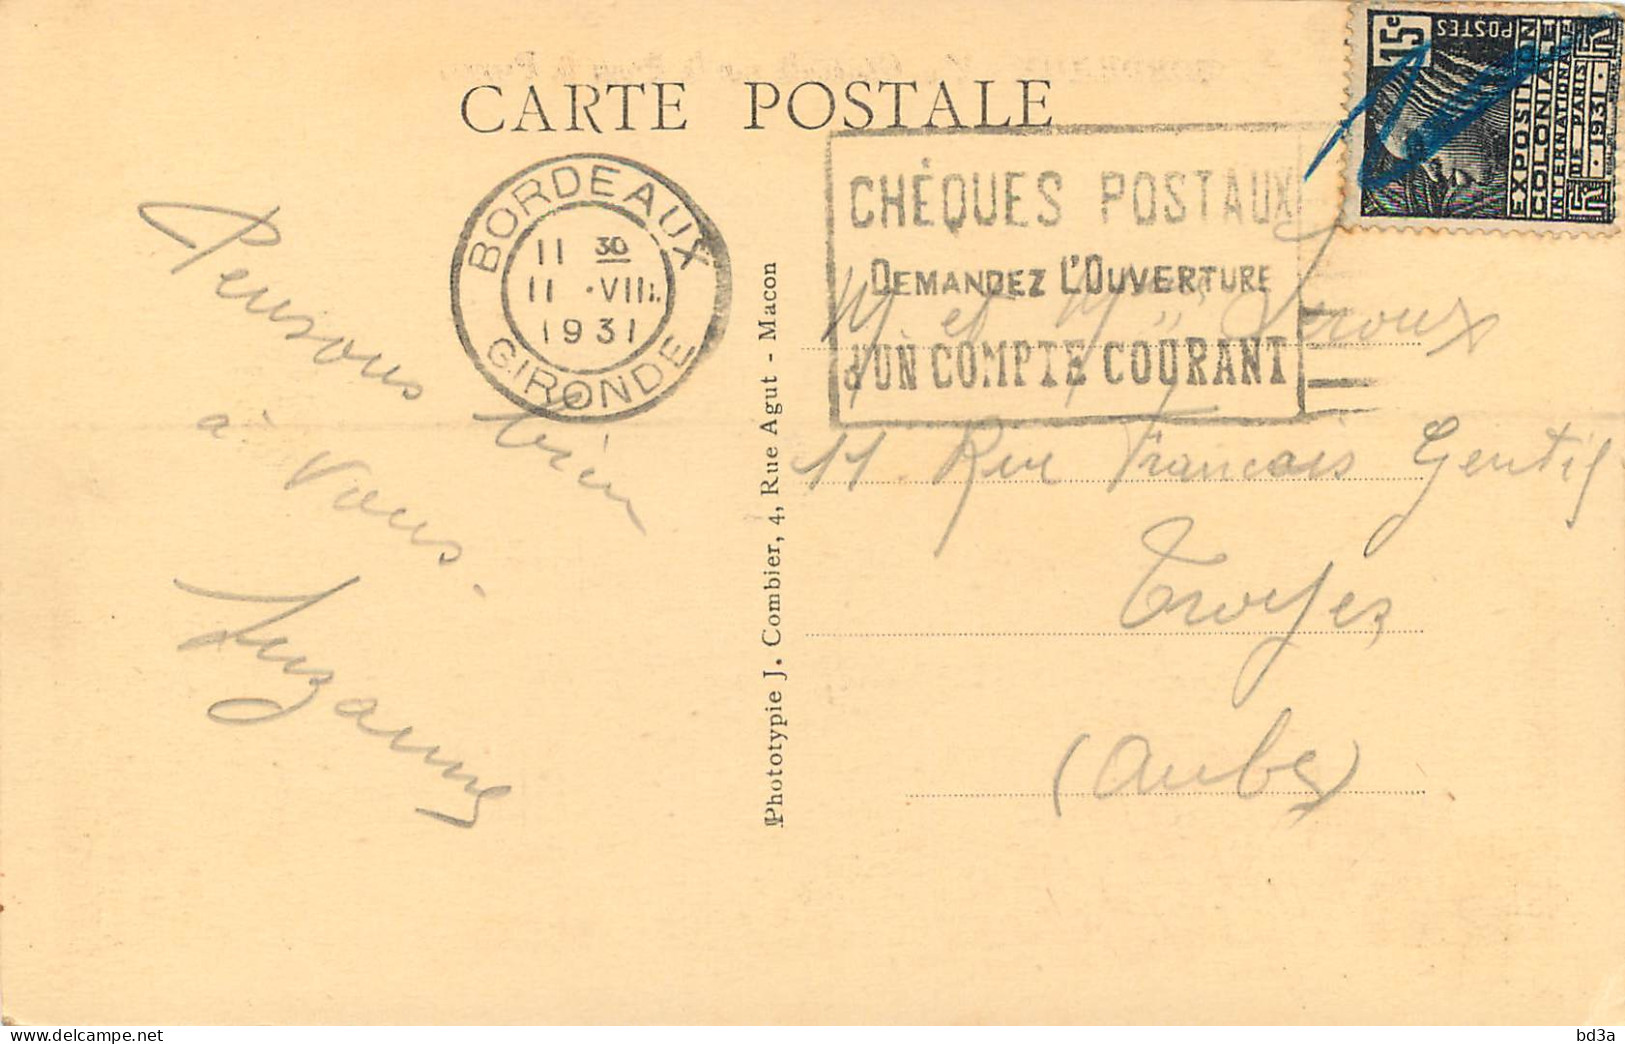 CARTE POSTALE
BORDEAUX
11 30
11 ·VIII
1931
GIRONDE
CHÈQUES POSTAUX
DEMANDEZ L'OUVERTURE
d'UN COMPTE COURANT
15c
POSTES
EXPOSITION
COLONIALE
INTERNATIONALE
DE PARIS
·1931·
Pensons bien
à vous.
Suzanne
Phototypie J. Combier, 4, Rue Agut - Macon
M et Mme Leroux
11 Rue Francais Gentil
Troyes
(Aube)
bd3a